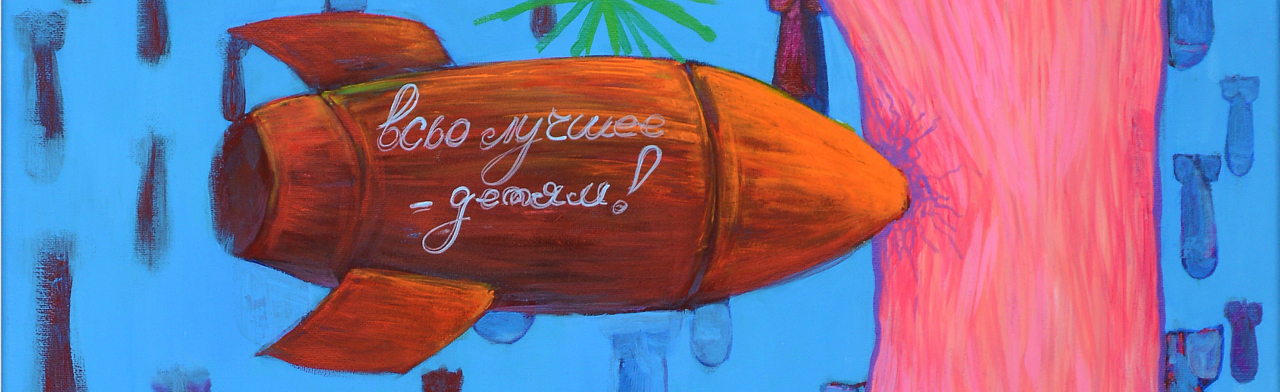 всьо лучшее
- детям!